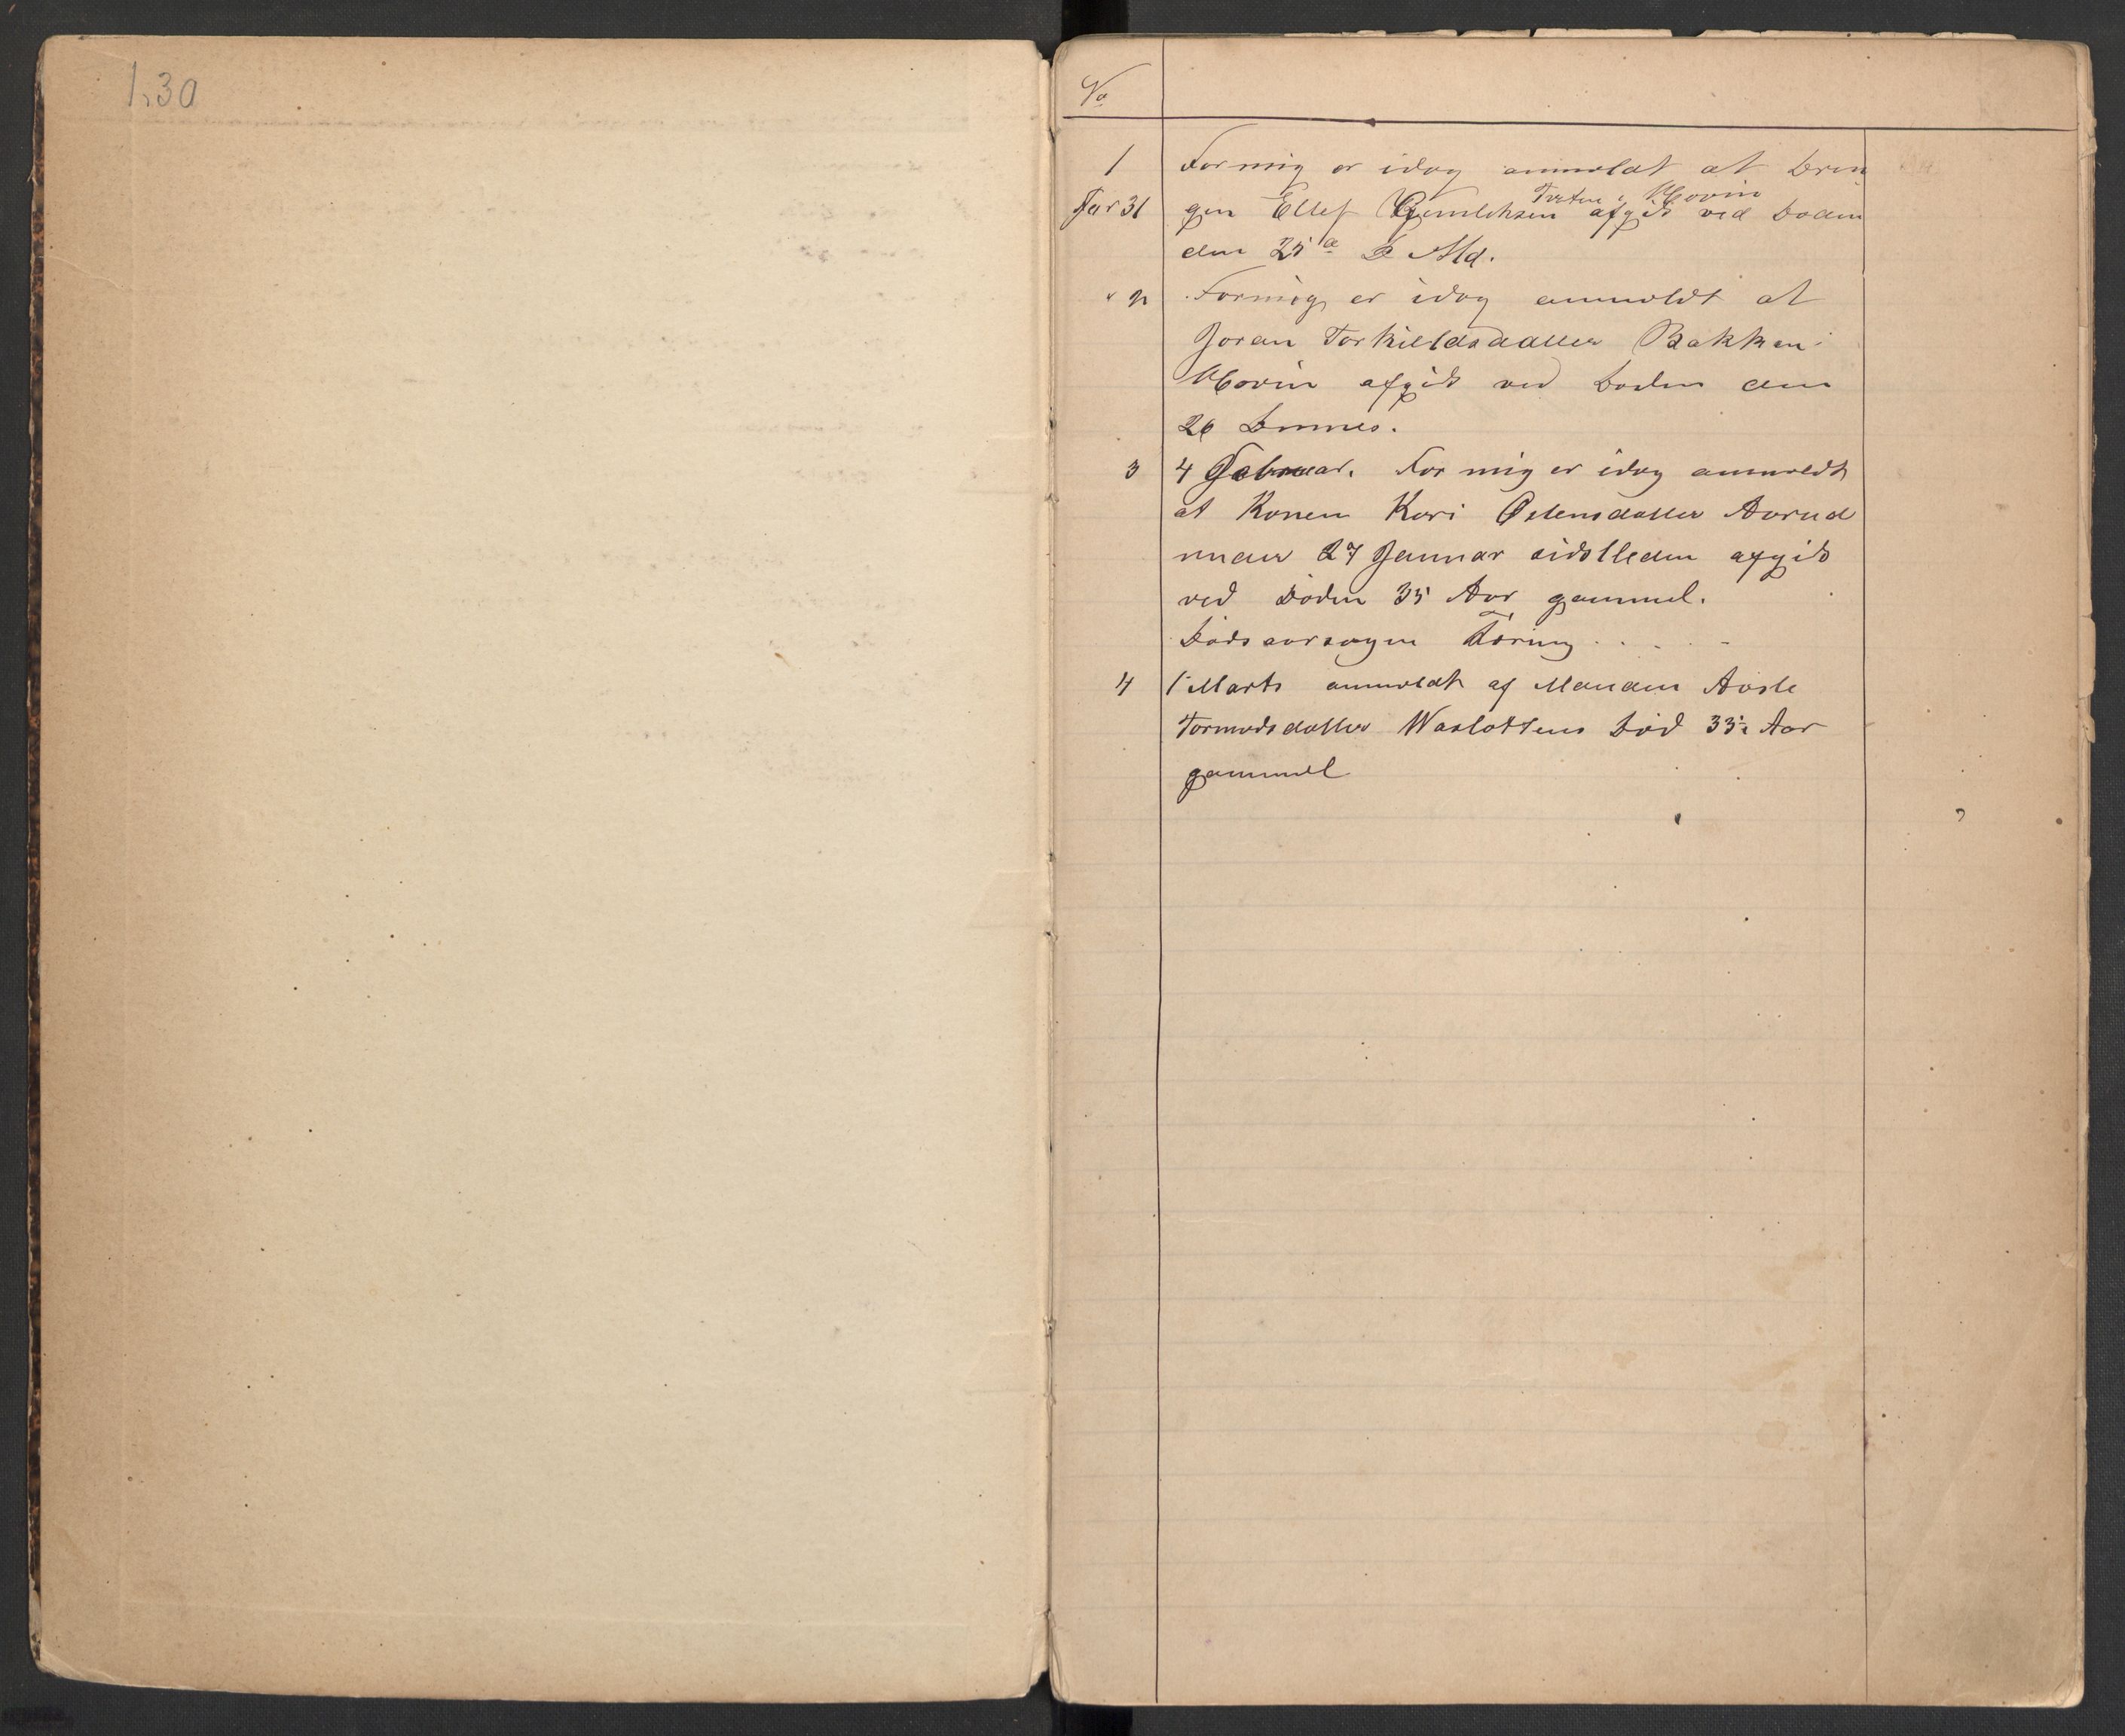 1.30
No
1 For mig er idag anmeldt at Dren
Jar 31 gen Ellef Gunleksen Tveten i Hovin afgik ved Døden
den 25 d D Md.
" 2 For mig er idag anmeldt at
Joran Torkildsdatter Bakken i
Hovin afgik ved Døden den
26 Dennes.
3 4 Februar. For mig er idag anmeldt
at Konen Kari Østensdatter Aarud
under 27 Januar sidstleden afgik
ved Døden 35 Aar gammel.
Dødsaarsagen Tæring . . . -
4 1 Marts anmeldt af Manden Aasle
Tormodsdatter Waslottens Død 33½ Aar
gammel